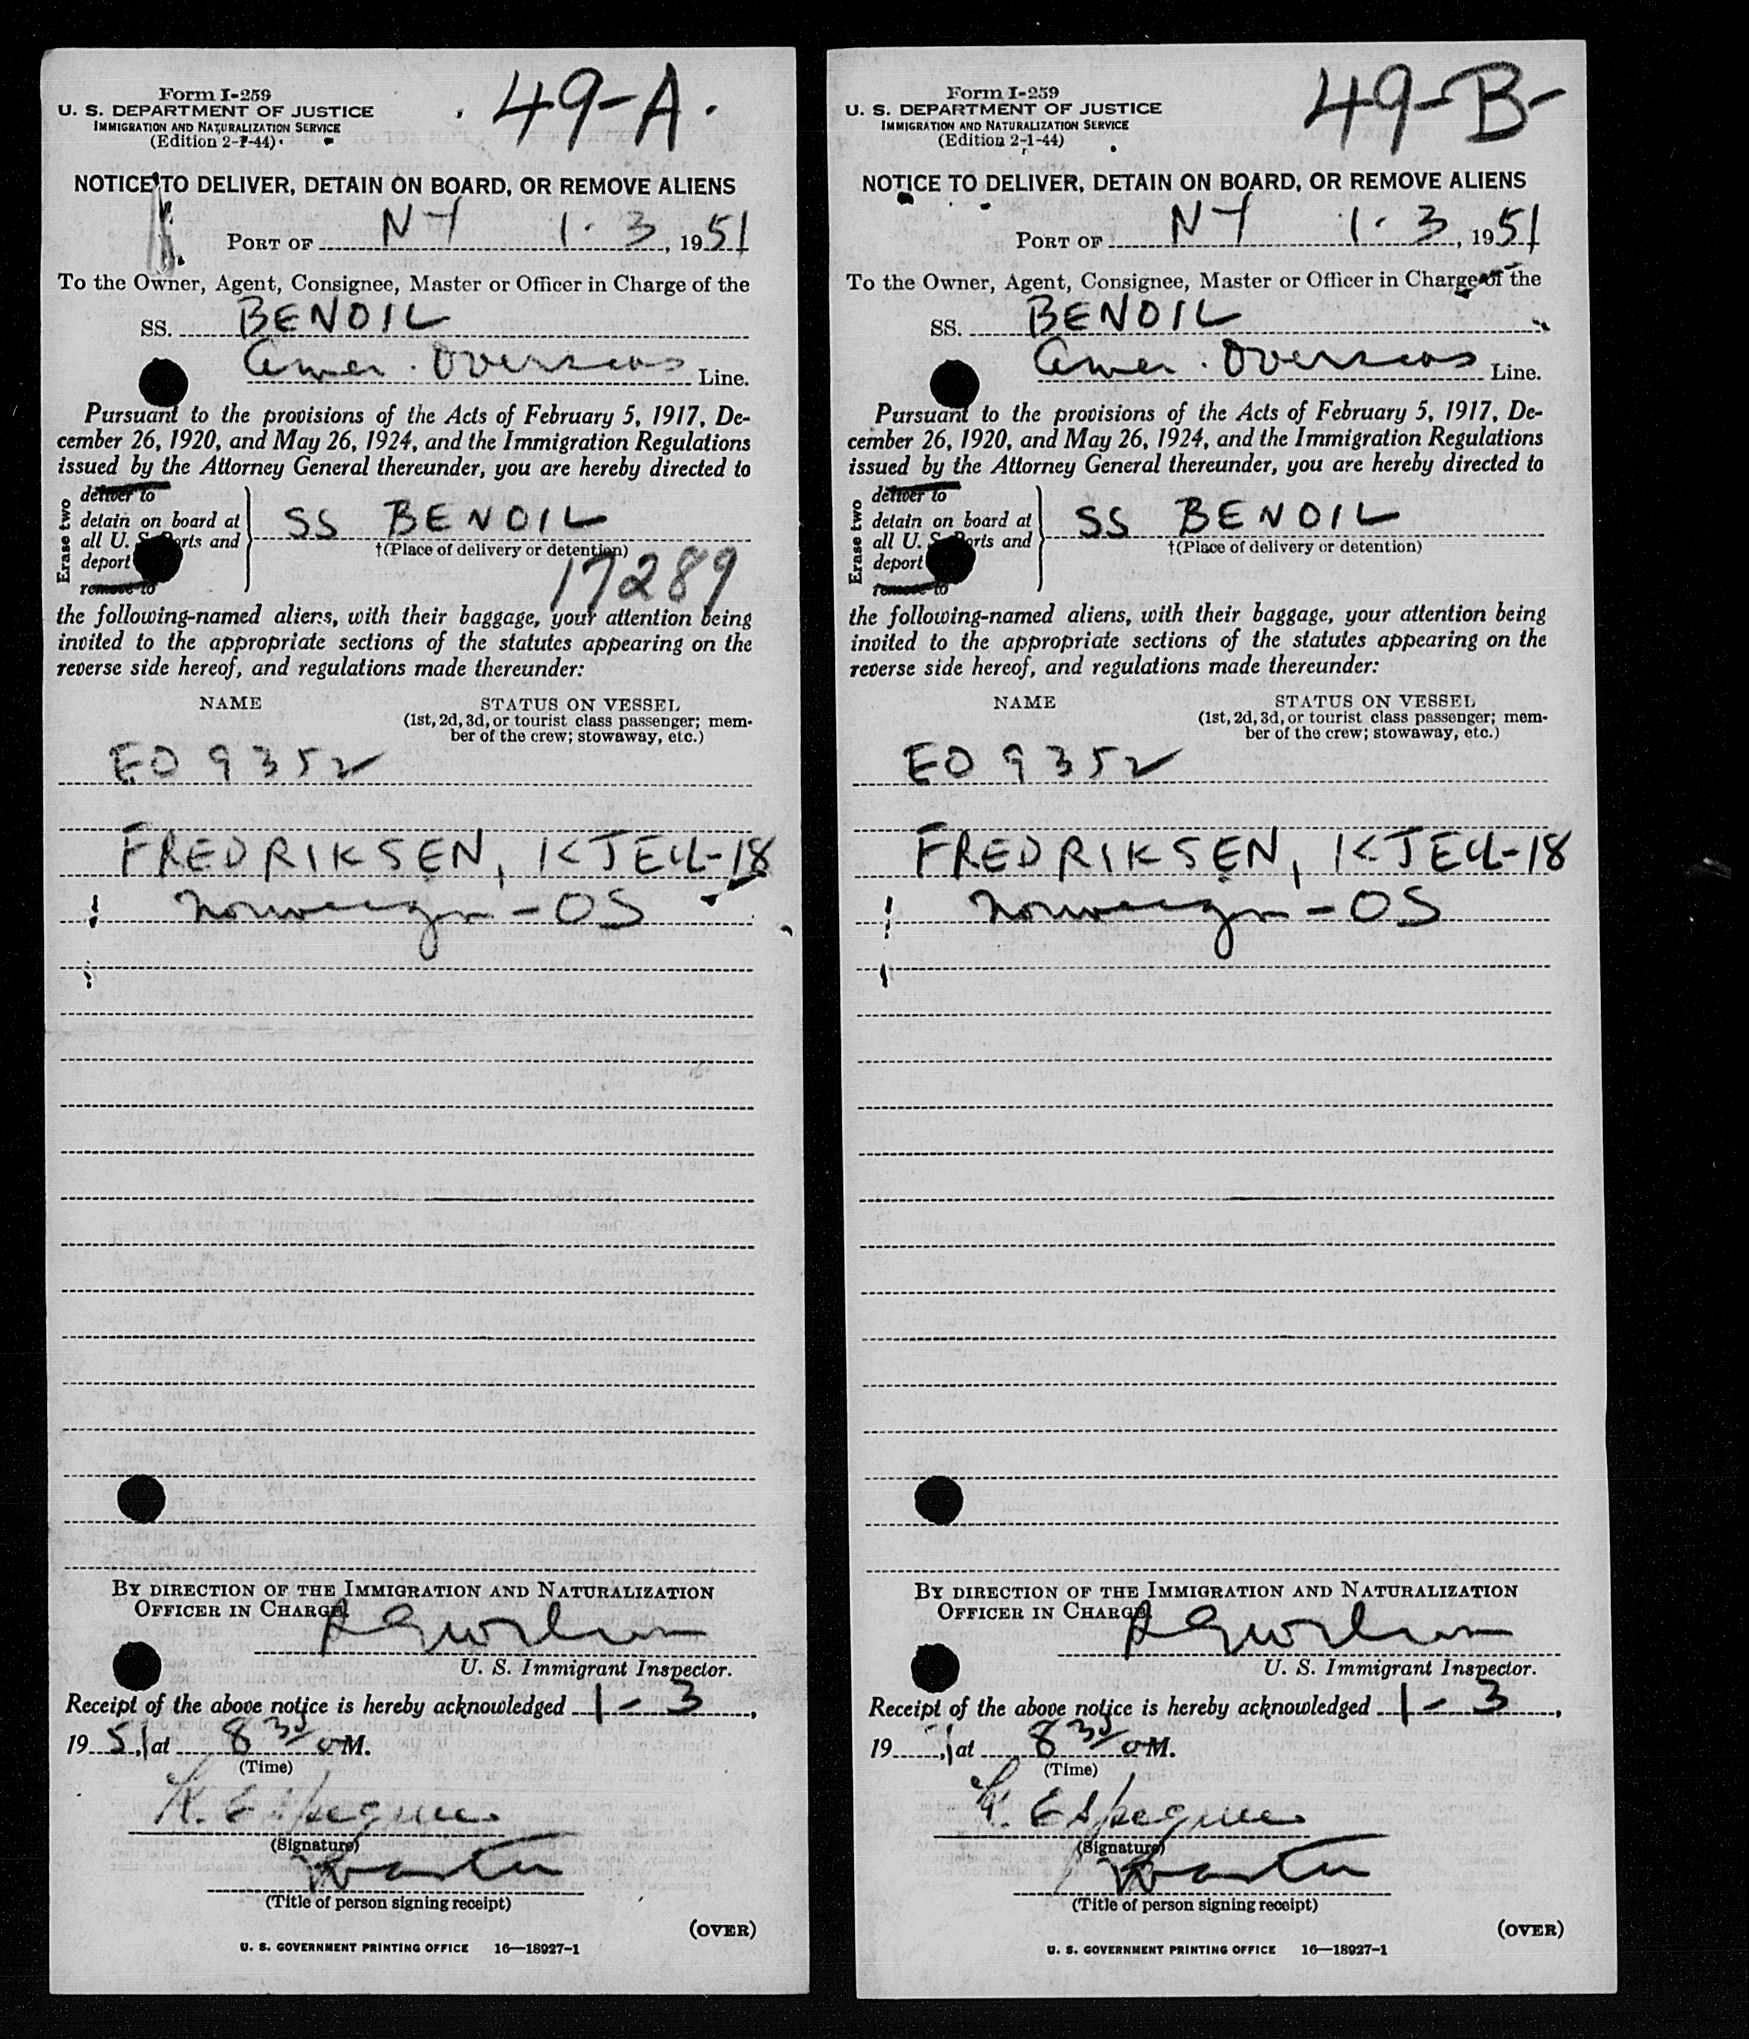 Form I-259
U. S. DEPARTMENT OF JUSTICE
IMMIGRATION AND NATURALIZATION SERVICE
(Edition 2-1-44)
49-A.
NOTICE TO DELIVER, DETAIN ON BOARD, OR REMOVE ALIENS
PORT OF NY 1-3, 1951
To the Owner, Agent, Consignee, Master or Officer in Charge of the
SS. BENOIL
Amer. Overseas Line.
Pursuant to the provisions of the Acts of February 5, 1917, De-
cember 26, 1920, and May 26, 1924, and the Immigration Regulations
issued by the Attorney General thereunder, you are hereby directed to
Erase two
deliver to
detain on board at
all U. S. Ports and
deport
remove to
SS BENOIL
†(Place of delivery or detention)
17289
the following-named aliens, with their baggage, your attention being
invited to the appropriate sections of the statutes appearing on the
reverse side hereof, and regulations made thereunder:
NAME
STATUS ON VESSEL
(1st, 2d, 3d, or tourist class passenger; mem-
ber of the crew; stowaway, etc.)
EO 9352
FREDRIKSEN, KJELL-18
Norwegn - OS
BY DIRECTION OF THE IMMIGRATION AND NATURALIZATION
OFFICER IN CHARGE.
U. S. Immigrant Inspector.
Receipt of the above notice is hereby acknowledged 1-3,
1951, at 8 30 aM.
(Time)
(Signature)
Master
(Title of person signing receipt)
(OVER)
U. S. GOVERNMENT PRINTING OFFICE 16—18927-1
Form I-259
U. S. DEPARTMENT OF JUSTICE
IMMIGRATION AND NATURALIZATION SERVICE
(Edition 2-1-44)
49-B-
NOTICE TO DELIVER, DETAIN ON BOARD, OR REMOVE ALIENS
PORT OF NY 1-3, 1951
To the Owner, Agent, Consignee, Master or Officer in Charge of the
SS. BENOIL
Amer. Overseas Line.
Pursuant to the provisions of the Acts of February 5, 1917, De-
cember 26, 1920, and May 26, 1924, and the Immigration Regulations
issued by the Attorney General thereunder, you are hereby directed to
Erase two
deliver to
detain on board at
all U. S. Ports and
deport
remove to
SS BENOIL
†(Place of delivery or detention)
the following-named aliens, with their baggage, your attention being
invited to the appropriate sections of the statutes appearing on the
reverse side hereof, and regulations made thereunder:
NAME
STATUS ON VESSEL
(1st, 2d, 3d, or tourist class passenger; mem-
ber of the crew; stowaway, etc.)
EO 9352
FREDRIKSEN, KJELL-18
Norwegn - OS
BY DIRECTION OF THE IMMIGRATION AND NATURALIZATION
OFFICER IN CHARGE.
U. S. Immigrant Inspector.
Receipt of the above notice is hereby acknowledged 1-3,
19 1, at 8 30 aM.
(Time)
(Signature)
Master
(Title of person signing receipt)
(OVER)
U. S. GOVERNMENT PRINTING OFFICE 16—18927-1